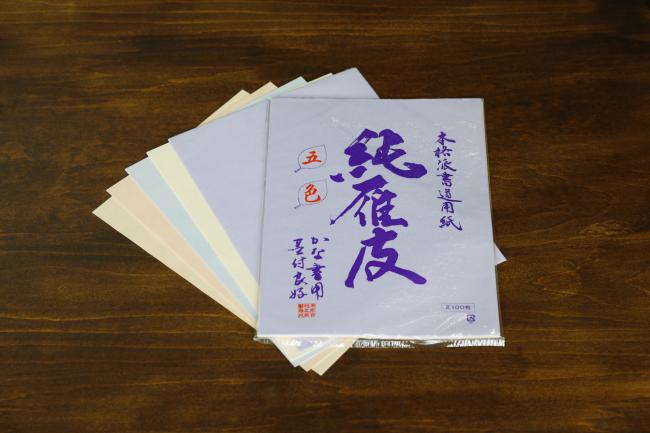 本格派書道用紙
純雁皮
五
色
かな書用
墨付良好
正100枚